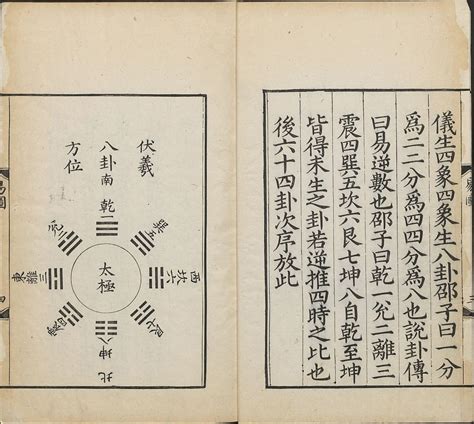 儀生四象四象生八卦邵子曰一分
爲二二分爲四四分爲八也說卦傳
曰易逆數也邵子曰乾一兊二離三
震四巽五坎六艮七坤八自乾至坤
皆得未生之卦若逆推四時之比也
後六十四卦次序放此
伏羲
八卦
方位
南
乾一
巽五
西
坎六
艮七
北
坤八
震四
東
離三
兊二
太極
易圖
四